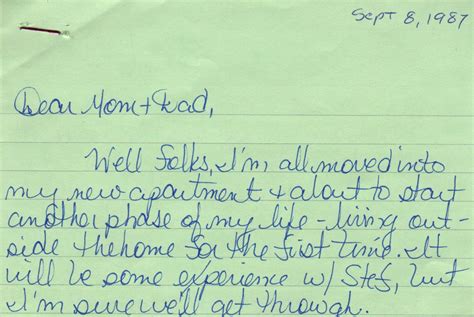 Sept 8, 1987
Dear Mom + Dad,
Well folks, I'm all moved into
my new apartment + about to start
another phase of my life - living out-
side the home for the first time. It
will be some experience w/ Stef, but
I'm sure we'll get through.